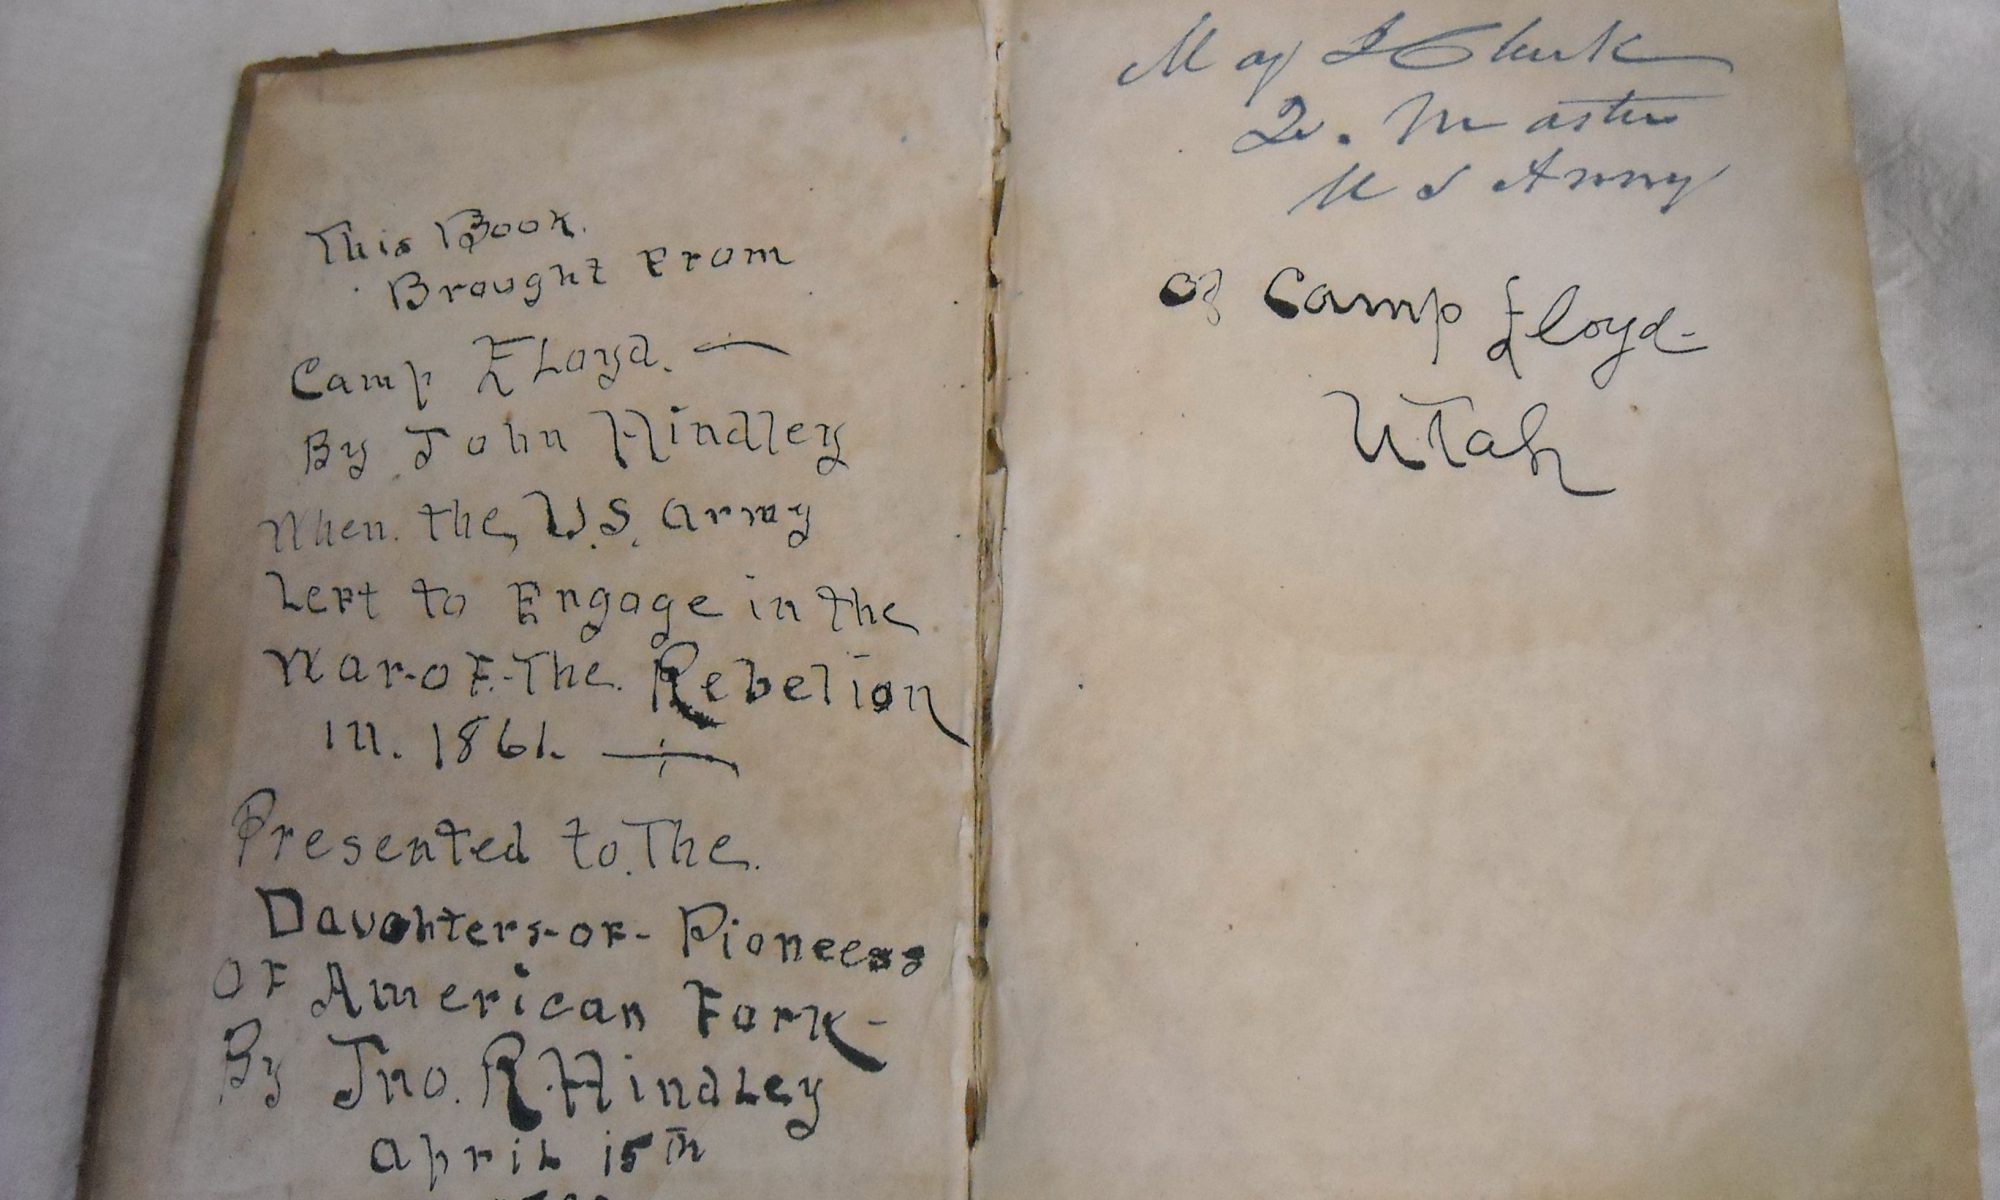 This Book.
Brought From
Camp Floyd. —
By John Hindley
When. the, U.S. army
Left to Engage in the
War-of-The. Rebelion
in. 1861. —
Presented to.The.
Daughters-of- Pioneers
OF American Fork -
By Jno. R. Hindley
April 15th
Maj
Qr. Master
U S Army
of Camp Floyd-
Utah